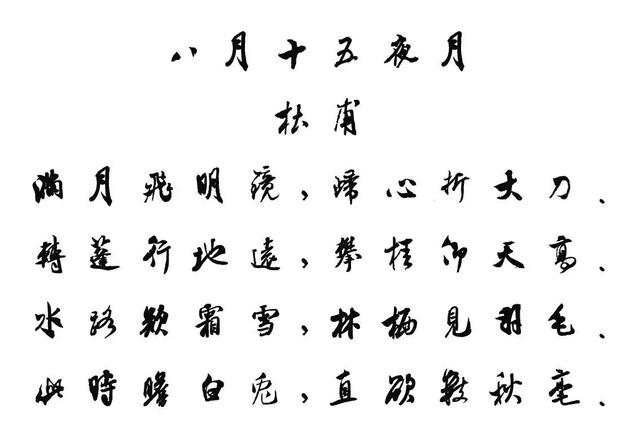 八月十五夜月
杜甫
滿月飛明鏡，歸心折大刀．
轉蓬行地遠，攀桂仰天高．
水路疑霜雪，林棲見羽毛．
此時瞻白兔，直欲數秋毫．